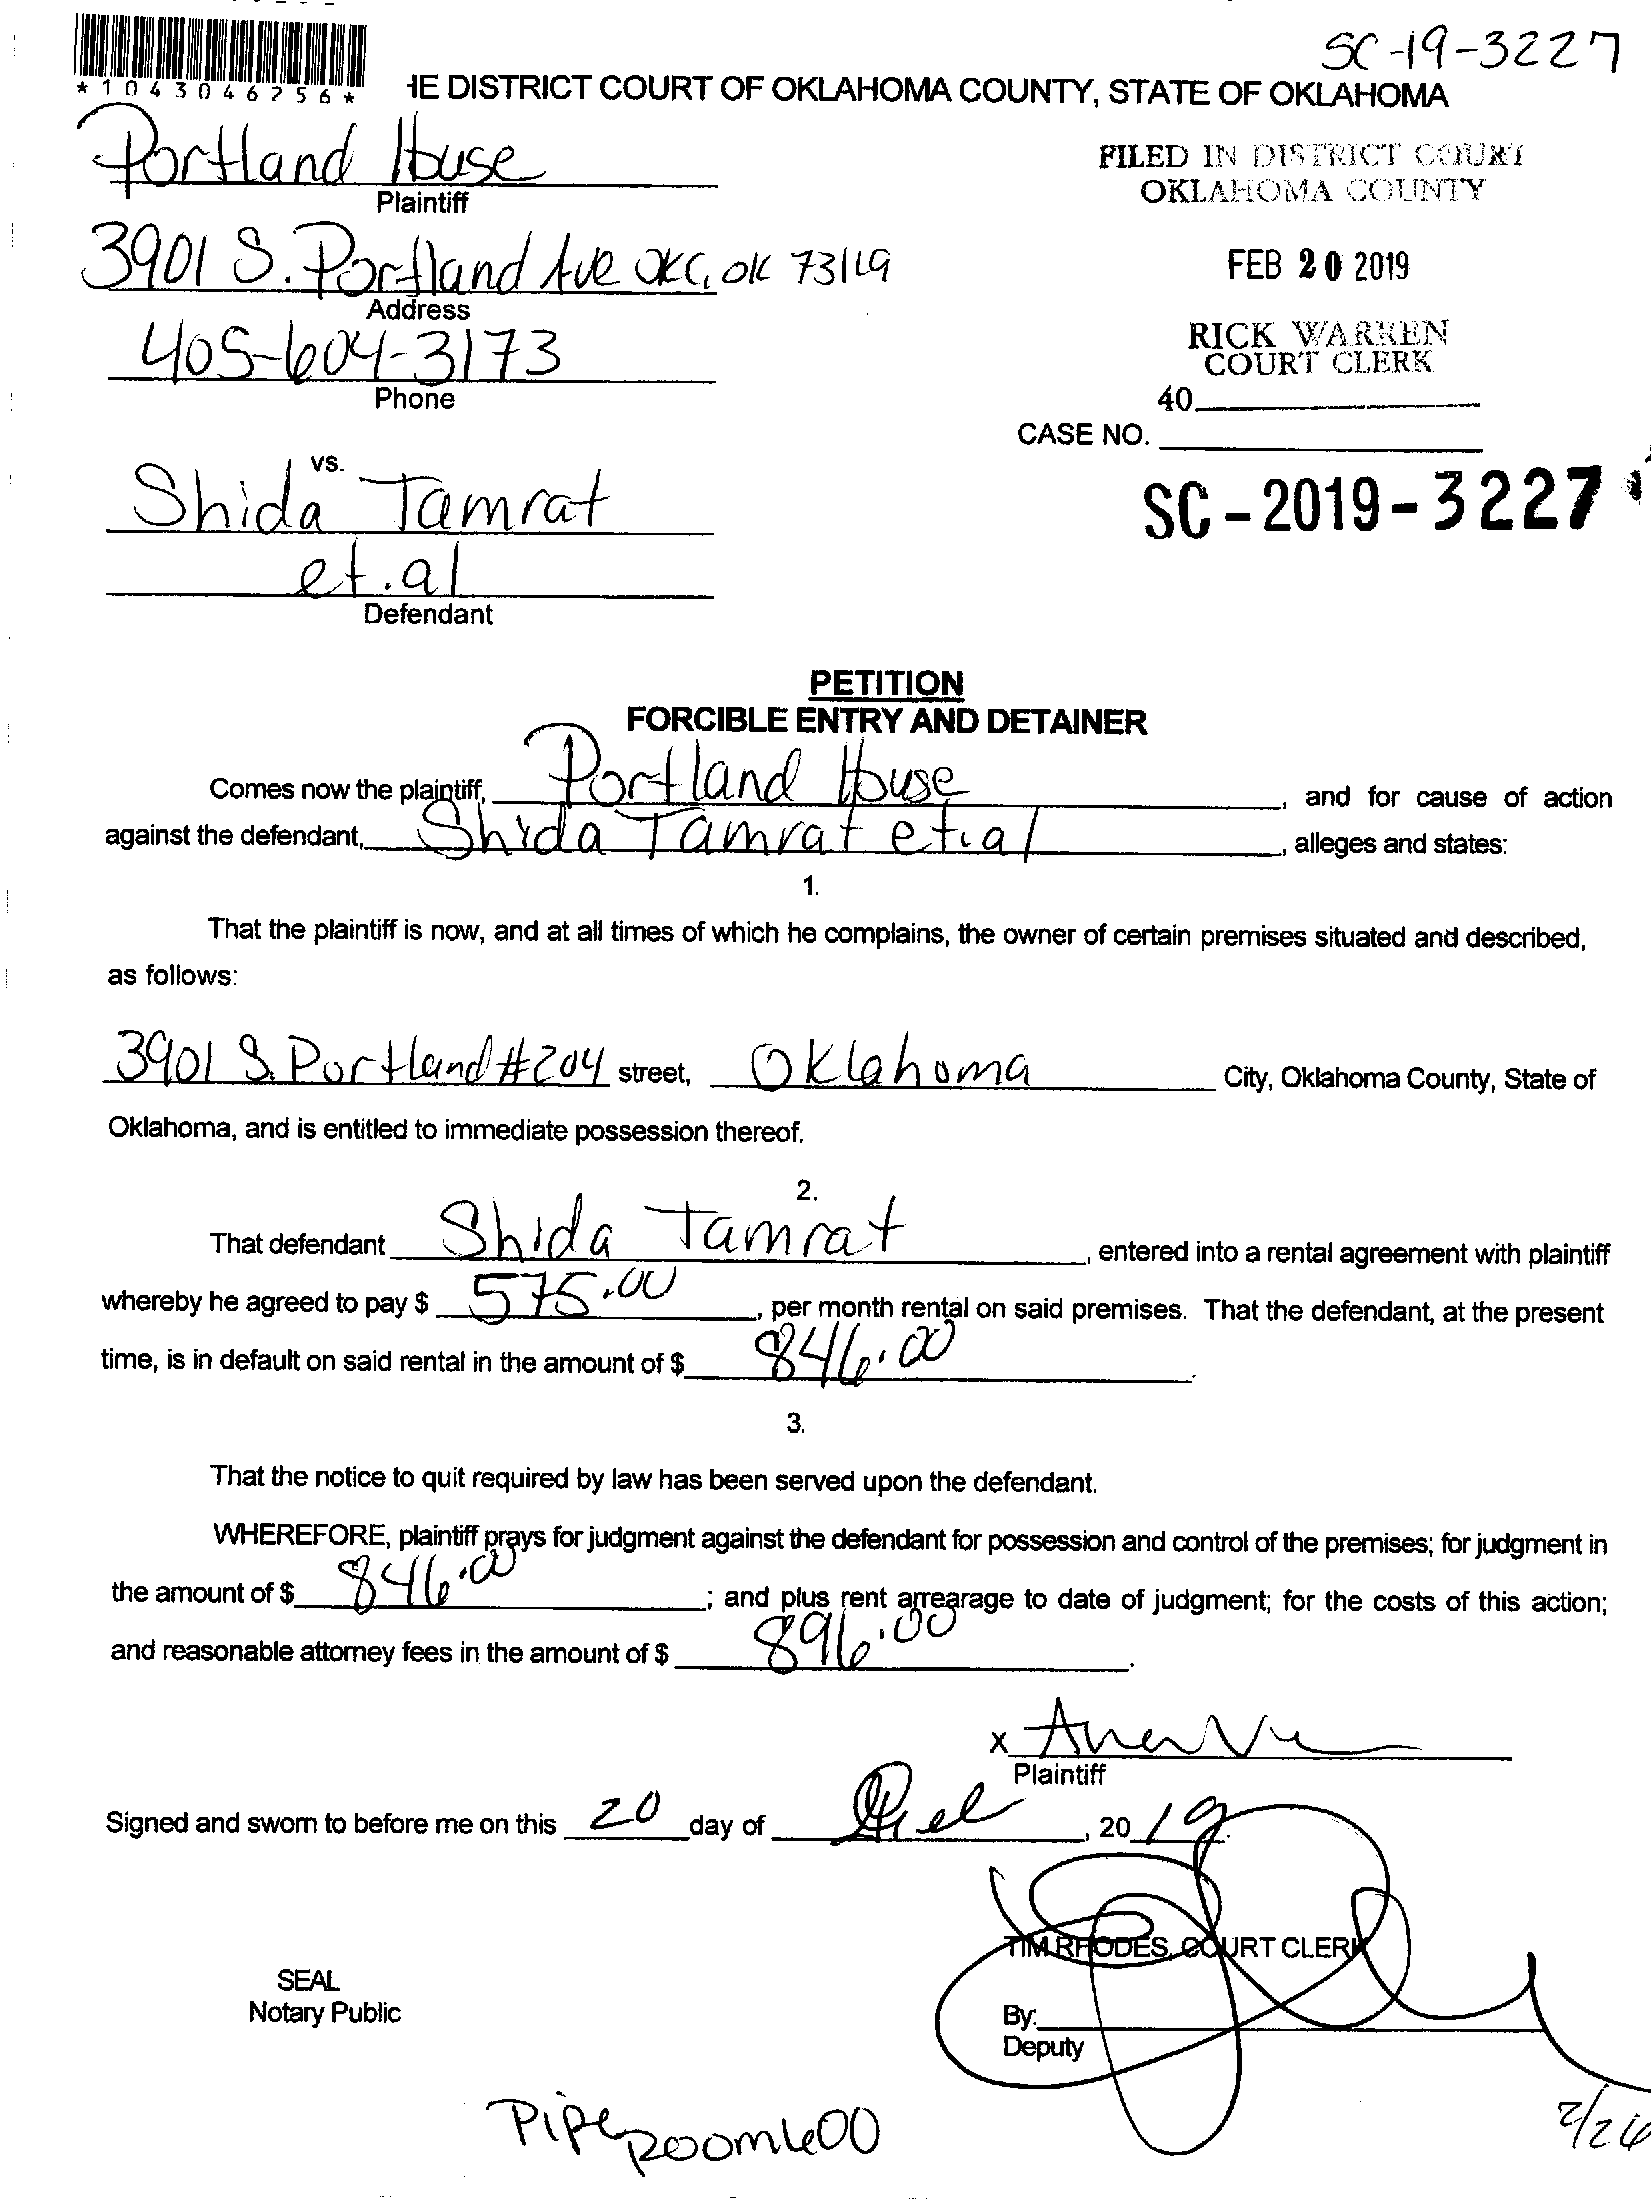 SC-19-3227
*1043046256*
HE DISTRICT COURT OF OKLAHOMA COUNTY, STATE OF OKLAHOMA
Portland House
Plaintiff
FILED IN DISTRICT COURT
OKLAHOMA COUNTY
3901 S. Portland Ave OKC, OK 73119
Address
FEB 20 2019
405-604-3173
Phone
RICK WARREN
COURT CLERK
40
CASE NO.
SC-2019-3227
vs.
Shida Tamrat
et.al
Defendant
PETITION
FORCIBLE ENTRY AND DETAINER
Comes now the plaintiff, Portland House, and for cause of action
against the defendant, Shida Tamrat et.al, alleges and states:
1.
That the plaintiff is now, and at all times of which he complains, the owner of certain premises situated and described,
as follows:
3901 S. Portland #204 street, Oklahoma City, Oklahoma County, State of
Oklahoma, and is entitled to immediate possession thereof.
2.
That defendant Shida Tamrat, entered into a rental agreement with plaintiff
whereby he agreed to pay $ 575.00, per month rental on said premises. That the defendant, at the present
time, is in default on said rental in the amount of $ 846.00.
3.
That the notice to quit required by law has been served upon the defendant.
WHEREFORE, plaintiff prays for judgment against the defendant for possession and control of the premises; for judgment in
the amount of $ 846.00; and plus rent arrearage to date of judgment; for the costs of this action;
and reasonable attorney fees in the amount of $ 896.00.
x
Plaintiff
Signed and sworn to before me on this 20 day of , 20 19.
TIM RHODES, COURT CLERK
SEAL
Notary Public
By:
Deputy
Pipe
Room 600
2/26